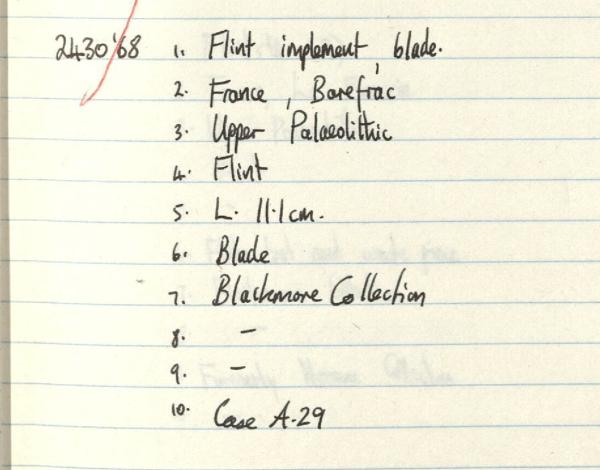 2430'68 1. Flint implement, blade.
2. France, Barefrác
3. Upper Palaeolithic
4. Flint
5. L. 11.1cm.
6. Blade
7. Blackmore Collection
8. —
9. —
10. Case A.29